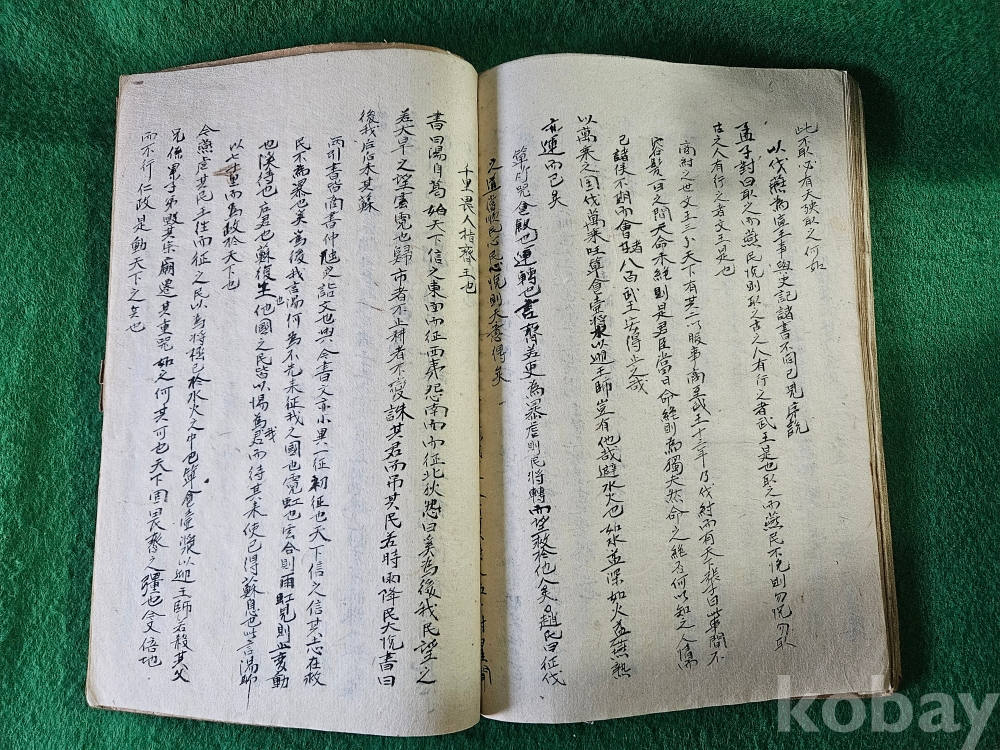 此不取必有天殃取之何如
以伐燕爲宣王事與史記諸書不同已見序說
孟子對曰取之而燕民悅則取之古之人有行之者武王是也取之而燕民不悅則勿取
古之人有行之者文王是也
商紂之世文王三分天下有其二以服事商至武王十三年乃伐紂而有天下張子曰此事間不
容髮一日之間天命未絶則是君臣當日命絶則爲獨夫然命之絶否何以知之人情而
已諸侯不期而會者八百武王安得止之哉
以萬乘之國伐萬乘之國簞食壺漿以迎王師豈有他哉避水火也如水益深如火益熱
亦運而已矣
簞 食 也運轉也言齊若更爲暴虐則民將轉而望救於他人矣趙氏曰征伐
之道 順民心民心悅則天意得矣
千里畏人指齊王也
書曰湯一征自葛始天下信之東面而征西夷怨南面而征北狄怨曰奚爲後我民望之
若大旱之望雲霓也歸市者不止耕者不變誅其君而吊其民若時雨降民大悅書曰
徯我后后來其蘇
兩引書皆商書仲虺之誥文也與今書文亦小異一征初征也天下信之信其志在救
民不爲暴也奚爲後我言湯何爲不先來征我之國也霓虹也雲合則雨虹見則止變動
也徯待也后君也蘇復生也他國之民皆以湯爲我君而待其來使已得蘇息也此言湯所
以七十里而爲政於天下也
今燕虐其民王往而征之民以爲將拯己於水火之中也簞食壺漿以迎王師若殺其父
兄係累其子弟毁其宗廟遷其重器如之何其可也天下固畏齊之彊也今又倍地
而不行仁政是動天下之兵也
kobay